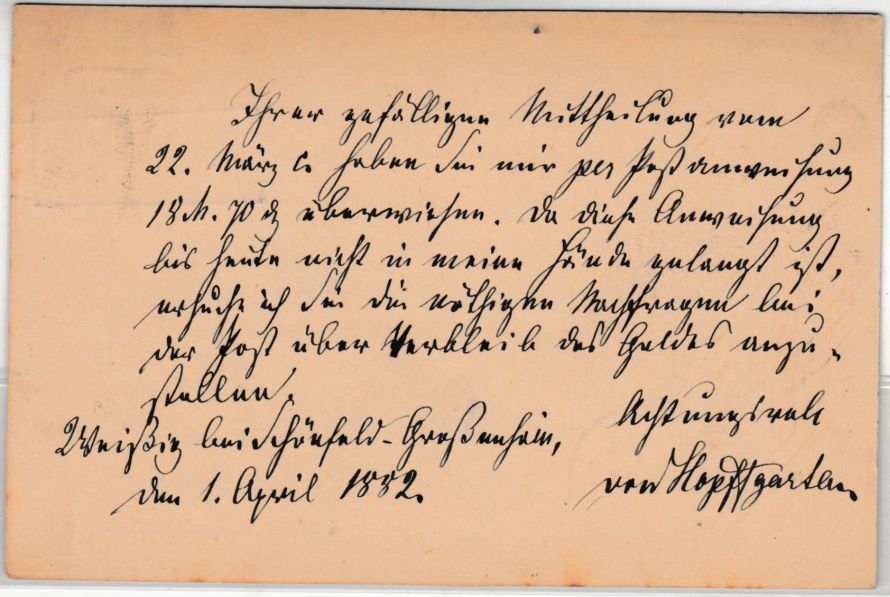 Ihrer gefälligen Mittheilung vom
22. März c. haben Sie mir per Postanweisung
18 M. 70 d überwiesen. Da diese Anweisung
bis heute nicht in meine Hände gelangt ist,
ersuche ich Sie die nöthigen Nachfragen bei
der Post über Verbleib des Geldes anzu-
stellen.
Achtungsvoll
Weißig bei Schönfeld-Großenhain,
den 1. April 1882.
von Hopffgarten